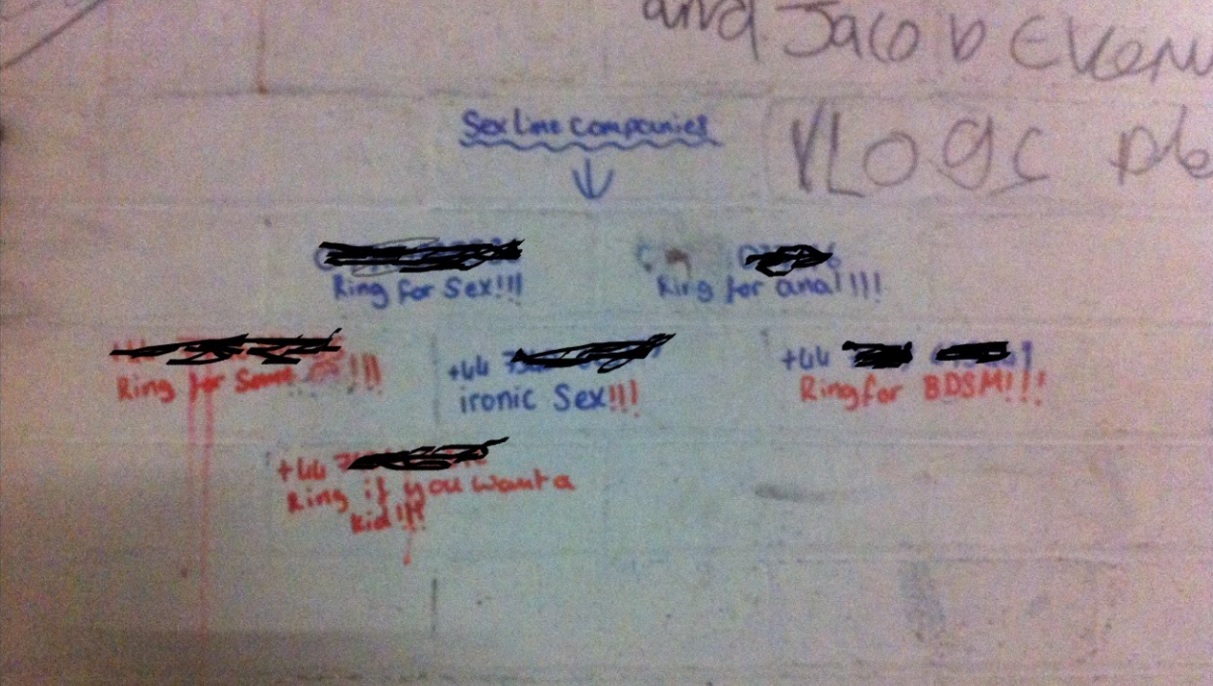 and Jacob
Sex Line companies
VLOgc
Ring for Sex!!!
Ring for anal!!!
Ring for !!!
+44
ironic Sex!!!
+44
Ring for BDSM!!!
+44
Ring if you want a
kid!!!